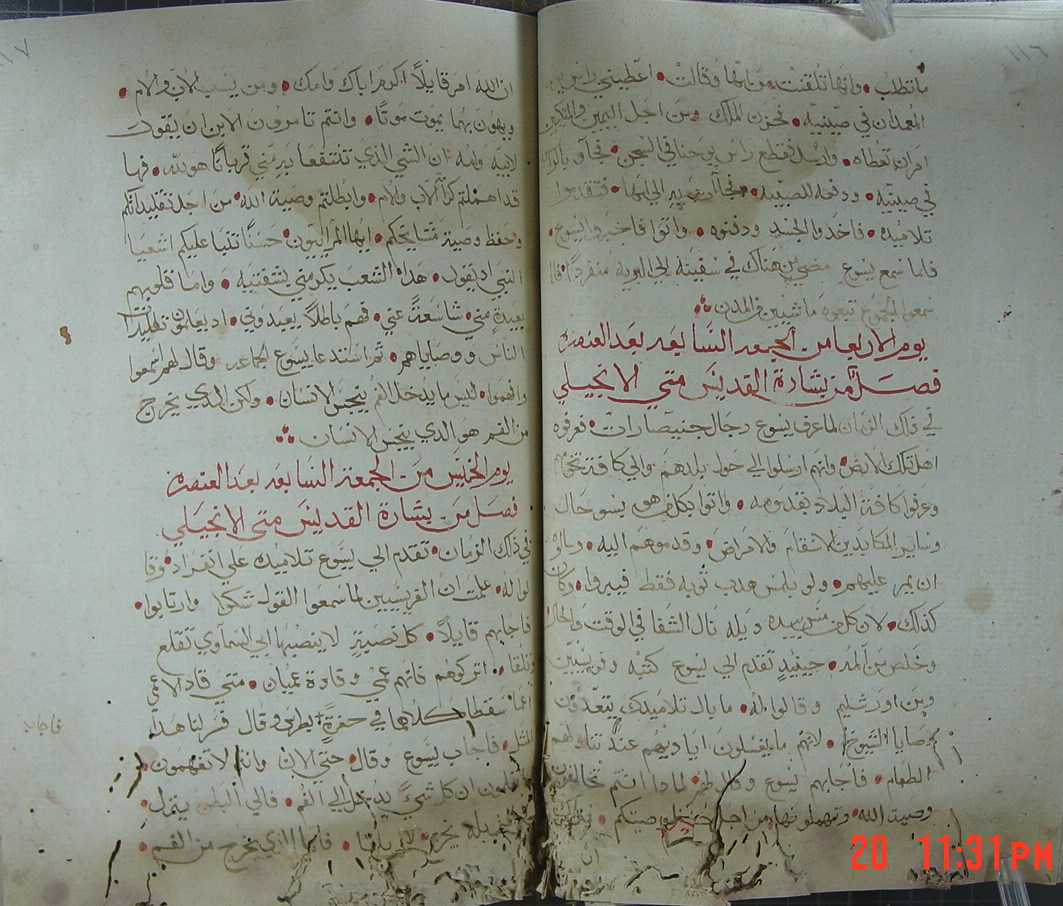 ١١٦
ما تطلب • وانها تلقنت من امها وقالت • اعطيني راس يو
المعمدان في صينيه • فحزن الملك ومن اجل اليمين والمتكيين
امر ان تعطاه • وارسل فقطع راس يوحنا في السجن • فجاو بالراس
في صينيه • ودفعه للصبيه • فجات به الي امها • فتقدموا
تلاميذه • فاخدوا الجسد ودفنوه • واتوا فاخبروا يسوع
فلما سمع يسوع مضي من هناك في سفينه الي البريه منفردا • فلما
سمعوا الجموع تبعوه ماشيين من المدن
يوم الاربعا من الجمعه السابعه بعد العنصره
فصل من بشارة القديس متي الانجيلي
في ذلك الزمان لما عرف يسوع رجال جنيصارات • فعرفوه
اهل تلك الارض • وانهم ارسلوا الي حول بلدهم والي كافة تخوم
وعرفوا كافة البلاد بقدومه • واتوا بكل من هو بسو حال
وساير المكابدين الاسقام والامراض • وقدموهم اليه • وسالوه
ان يمر عليهم • ولو بلمس هدب ثوبه فقط فيبروا • وكان
كذلك • لان كل من مس بيده ديله نال الشفا في الوقت والحال
وخلص من المه • حينيذ تقدم الي يسوع كتبه وفريسيين
من اورشليم وقالوا له • ما بال تلاميدك يتعدون
وصايا الشيوخ • لانهم ما يغسلون اياديهم عند تناولهم
الطعام • فاجابهم يسوع وقال لهم • لمادا انتم تخالفون
وصية الله • وتهملونها من اجل حفظ وصيتكم •
١١٧
ان الله امر قايلا اكرم اباك وامك • ومن يسب الاب والام •
ويهون بهما يموت موتا • وانتم تامرون الابن ان يقول
لابيه وامه ان الشي الذي تنتفعا به مني قربانا هو لله • فها
قد اهملتم كرامة الاب والام • وابطلتم وصية الله • من اجل تقليداتكم
وحفظ وصية مشايخكم • ايها المرايون • حسنا تنبا عليكم اشعيا
النبي اد يقول • هدا الشعب يكرمني بشفتيه • واما قلوبهم
بعيدة مني • شاسعة عني • فهم باطلا يعبدوني • اد يعلمون تعليمات
الناس ووصاياهم • ثم استدعا يسوع الجماعه وقال لهم اسمعوا
وافهموا • ليس ما يدخل الفم ينجس الانسان • ولكن الدي يخرج
من الفم هو الدي ينجس الانسان
يوم الخميس من الجمعة السابعه بعد العنصره
فصل من بشارة القديس متي الانجيلي
في ذلك الزمان • تقدم الي يسوع تلاميده علي انفراد • وقا
لوا له • علمت ان الفريسيين لما سمعوا القول شكوا وارتابوا •
فاجابهم قايلا • كل نصبة لا ينصبها ابي السماوي تقلع
وتلقا • اتركوهم فانهم عمي وقادة عميان • متي قاد الاعمي
اعما سقطا كلاهما في حفرة • بطرس وقال فسر لنا هدا
المثل • فاجاب يسوع وقال • حتي الان وانتم لا تفهمون •
تعلمون ان كل شي يدخل الي الفم • فالي البطن ينزل •
فاما الدي يخرج من الفم •
فاجابه
20 11:31PM